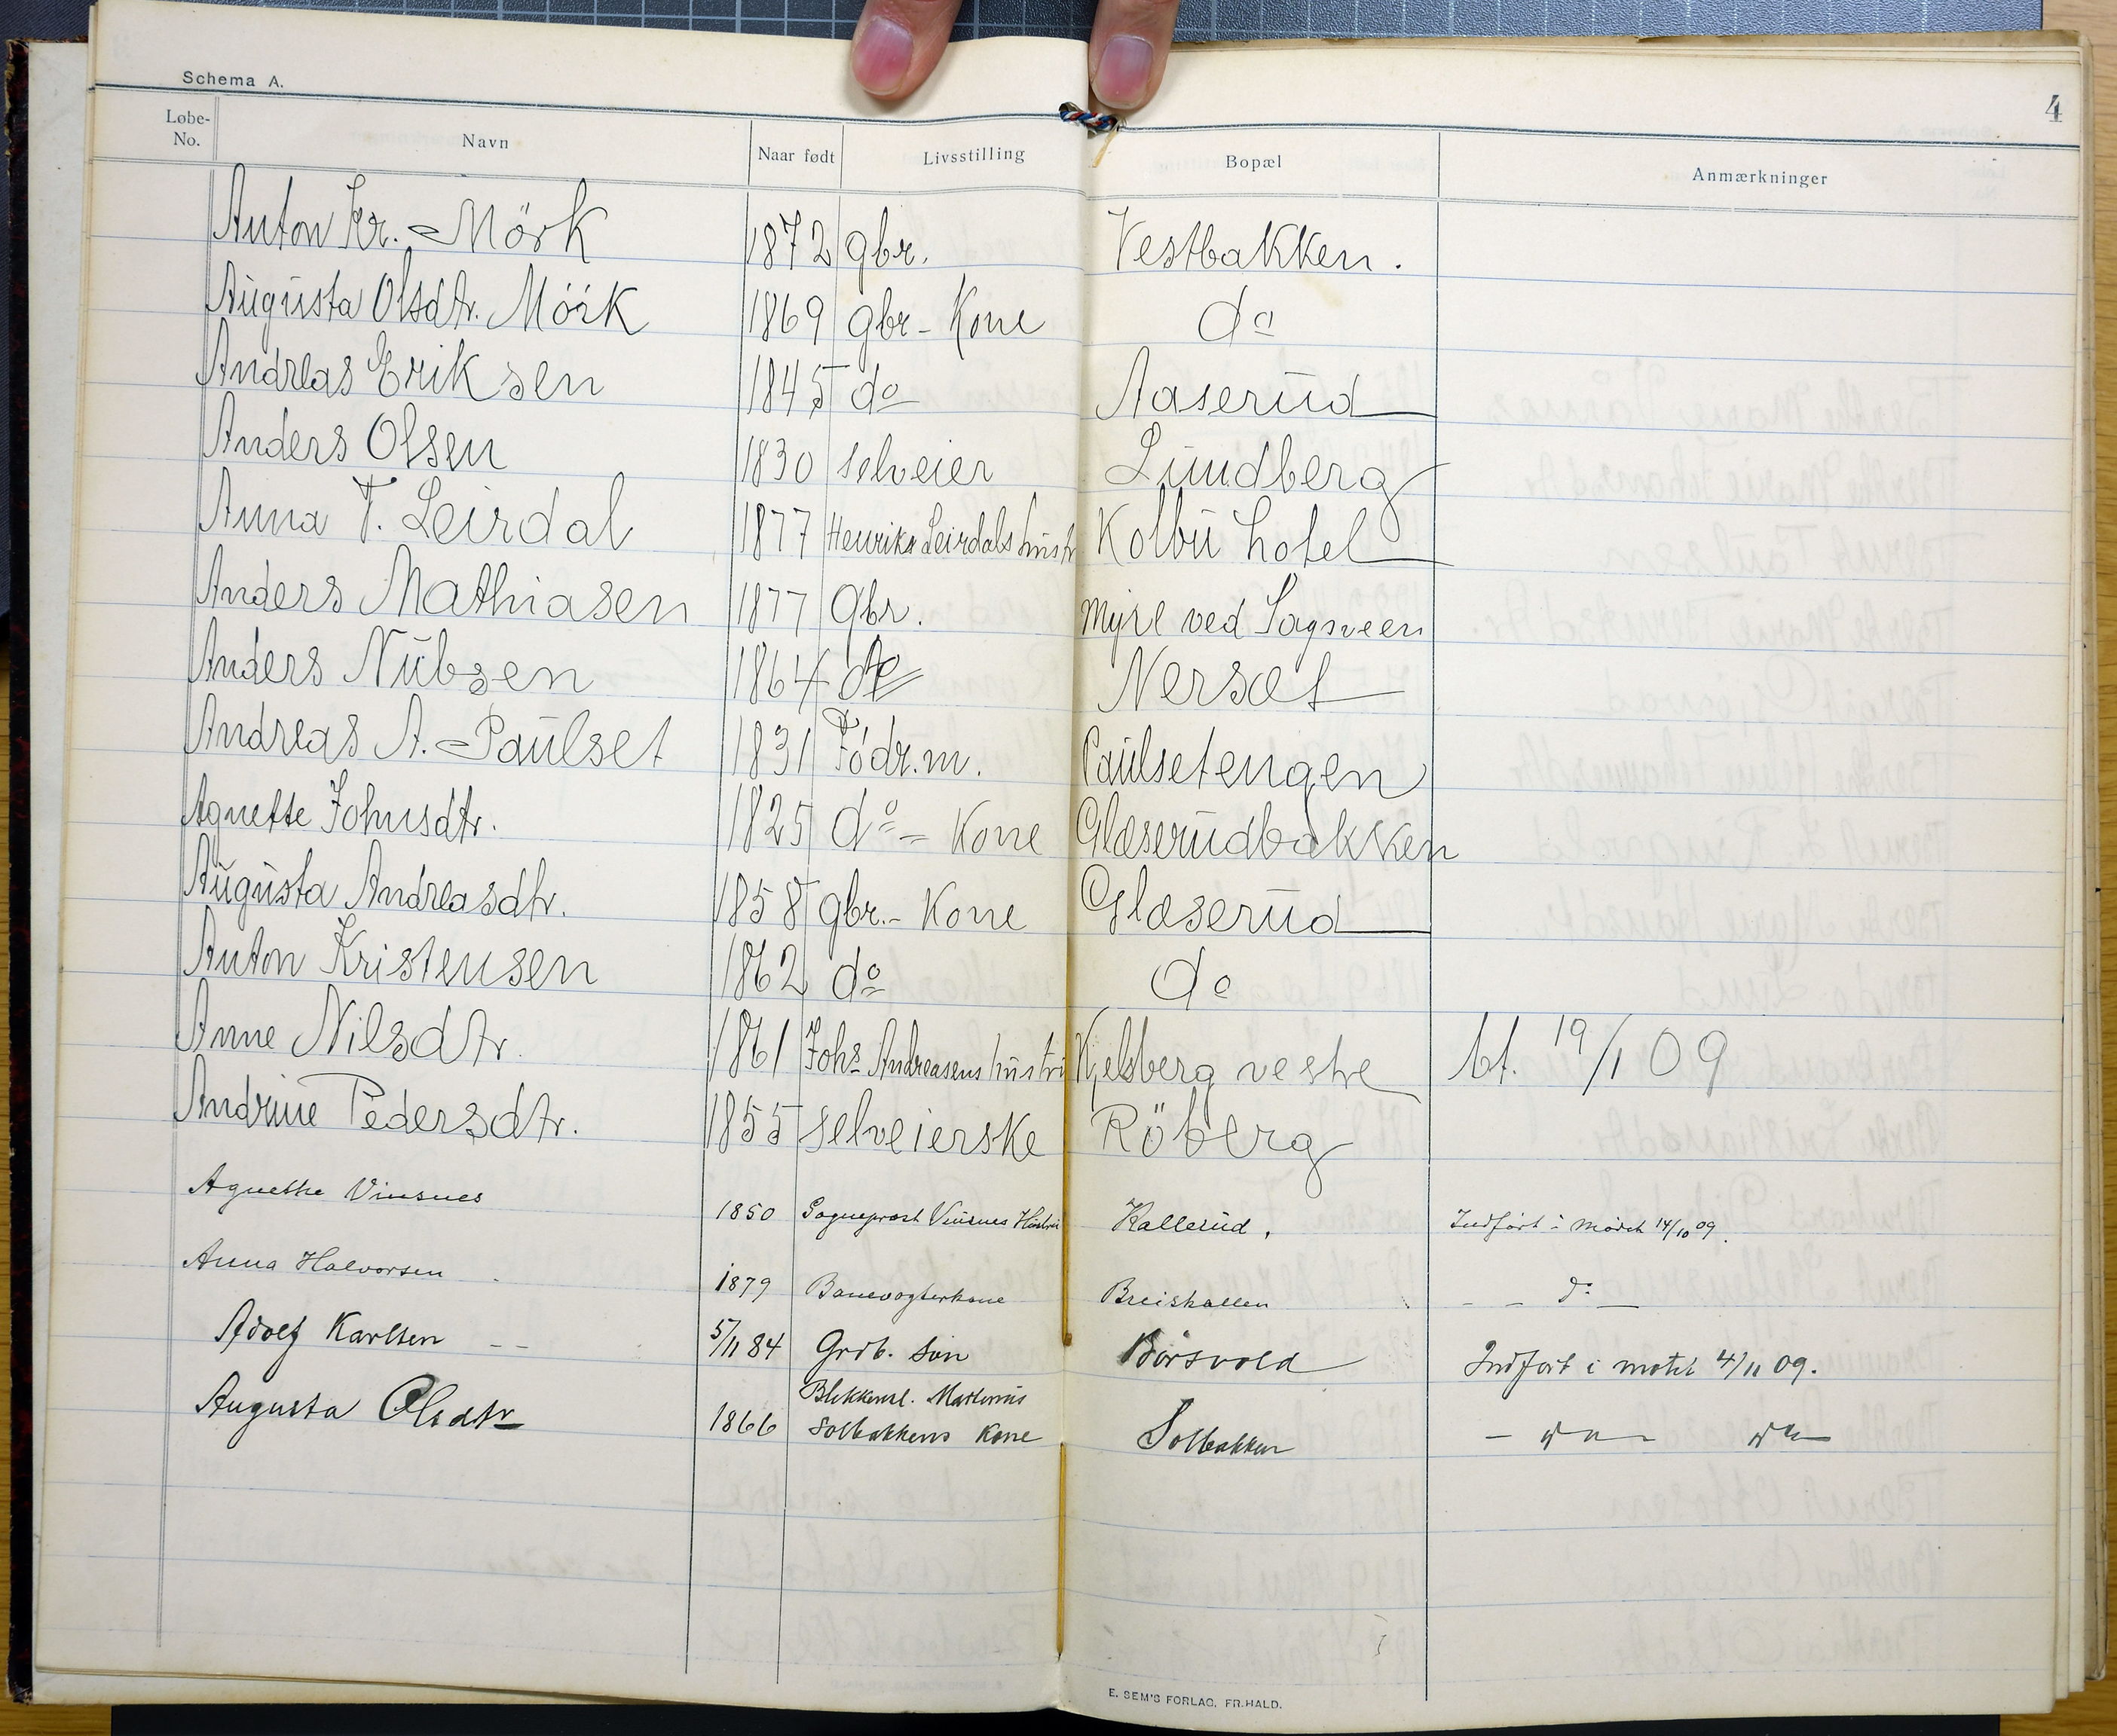 Schema A.
4
Løbe-No. Navn Naar født Livsstilling Bopæl Anmærkninger
Anton Kr. Mörk 1872 gbr. Vestbakken.
Augusta Olsdtr. Mörk 1869 gbr - Kone do
Andreas Eriksen 1845 do Aaserud
Anders Olsen 1830 selveier Lundberg
Anna T. Leirdal 1877 Henriks Leirdals hustr Kolbu hotel
Anders Mathiasen 1877 Gbr. Myre ved Sagsveen
Anders Nubsen 1864 do Nersæt
Andreas A. Paulset 1831 Födr.m. Paulsetengen
Agnette Johnsdtr. 1825 do - Kone Glæserudbakken
Augusta Andreasdtr. 1858 gbr. - Kone Glæserud
Anton Kristensen 1862 do do
Anne Nilsdtr. 1861 Johs Andreasens hustru Kjelsberg vestre bt. 19/1 09
Andrine Pedersdtr. 1855 selveierske Röberg
Agnethe Vinsnes 1850 Sogneprest Vinsnes Hustru Kallerud. Indført i mødet 14/10 09.
Anna Halvorsen 1879 Banevogterkone Breiskallen - - do -
Adolf Karlsen - - 5/11 84 Grdb. søn Börsvold Indført i møtet 4/11 09.
Augusta Olsdtr 1866 Blikkensl. Martinius
Solbakkens Kone Solbakken
E. SEM'S FORLAG, FR.HALD.